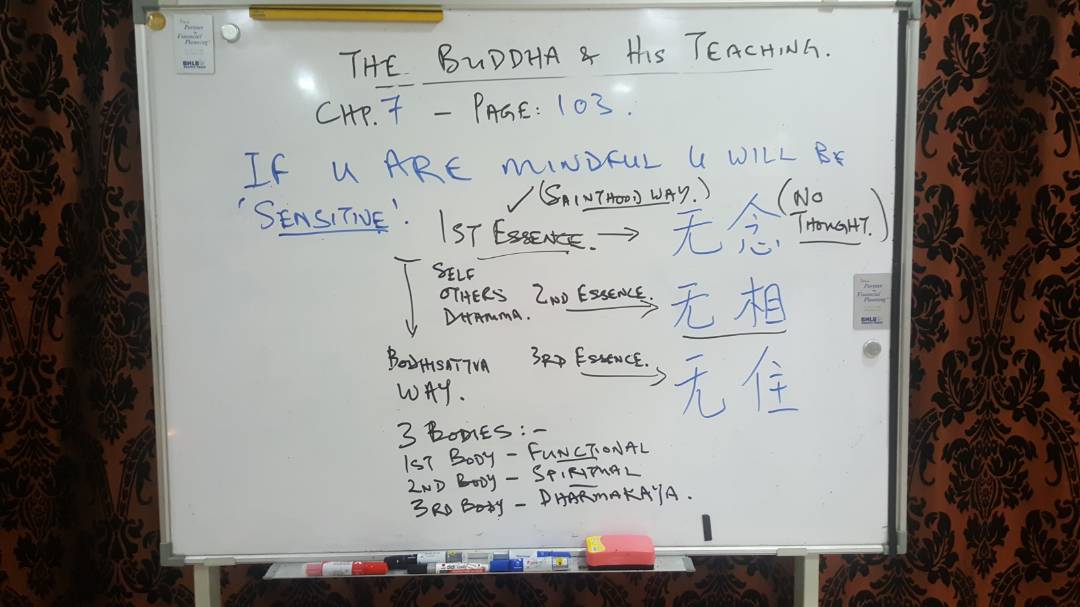 THE BUDDHA & HIS TEACHING.
CHP. 7 – PAGE: 103.
IF U ARE MINDFUL U WILL BE
'SENSITIVE'.
(SAINTHOOD WAY.)
1ST ESSENCE. → 无念 (NO THOUGHT.)
SELF
OTHERS
DHAMMA.
2ND ESSENCE. → 无相
BODHISATTVA
WAY.
3RD ESSENCE. → 无住
3 BODIES:-
1ST BODY – FUNCTIONAL
2ND BODY – SPIRITUAL
3RD BODY – DHARMAKAYA.
Partner
Financial
Planning
BHLB
Partner
Financial
Planning
BHLB